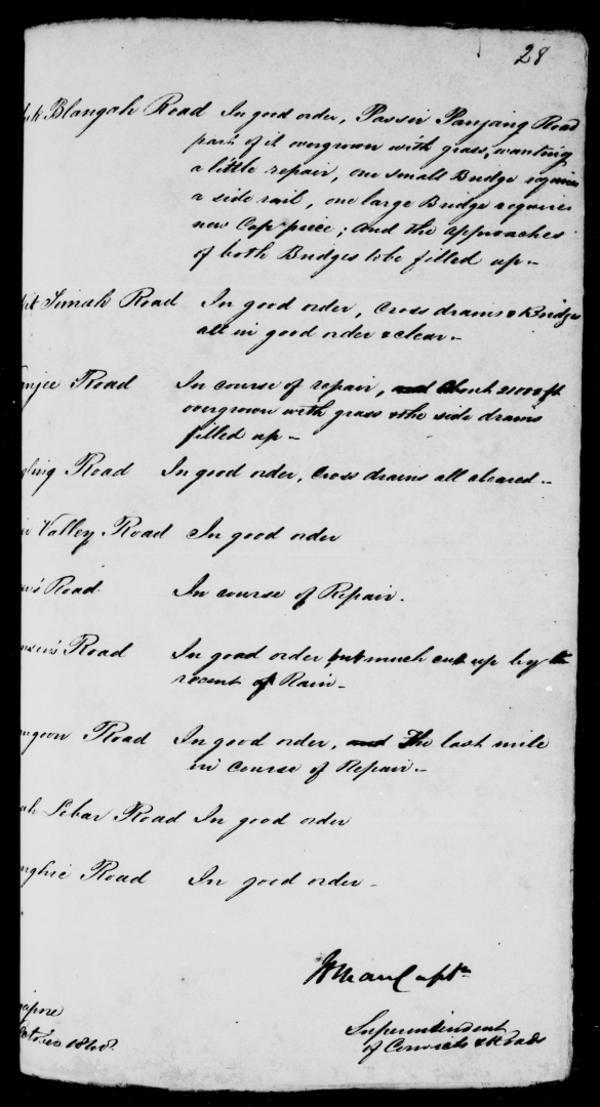 28
Blangah Road In good order, Passir Panjang Road
part of it overgrown with grass, wanting
a little repair, one small Bridge requires
a side rail, one large Bridge requires
new Cap piece; and the approaches
of both Bridges to be filled up—
Timah Road In good order, Cross drains & Bridges
all in good order & clear—
Road In course of repair, and about ft
overgrown with grass & the side drains
filled up—
ling Road In good order, Cross drains all cleared—
Valley Road In good order
Road In course of Repair.
Road In good order but much cut up by the
recent Rain—
ngoon Road In good order, and The last mile
in Course of Repair—
ah Lebar Road In good order
Road In good order—
Man Captn
Superintendent
of Convicts & Roads
apore